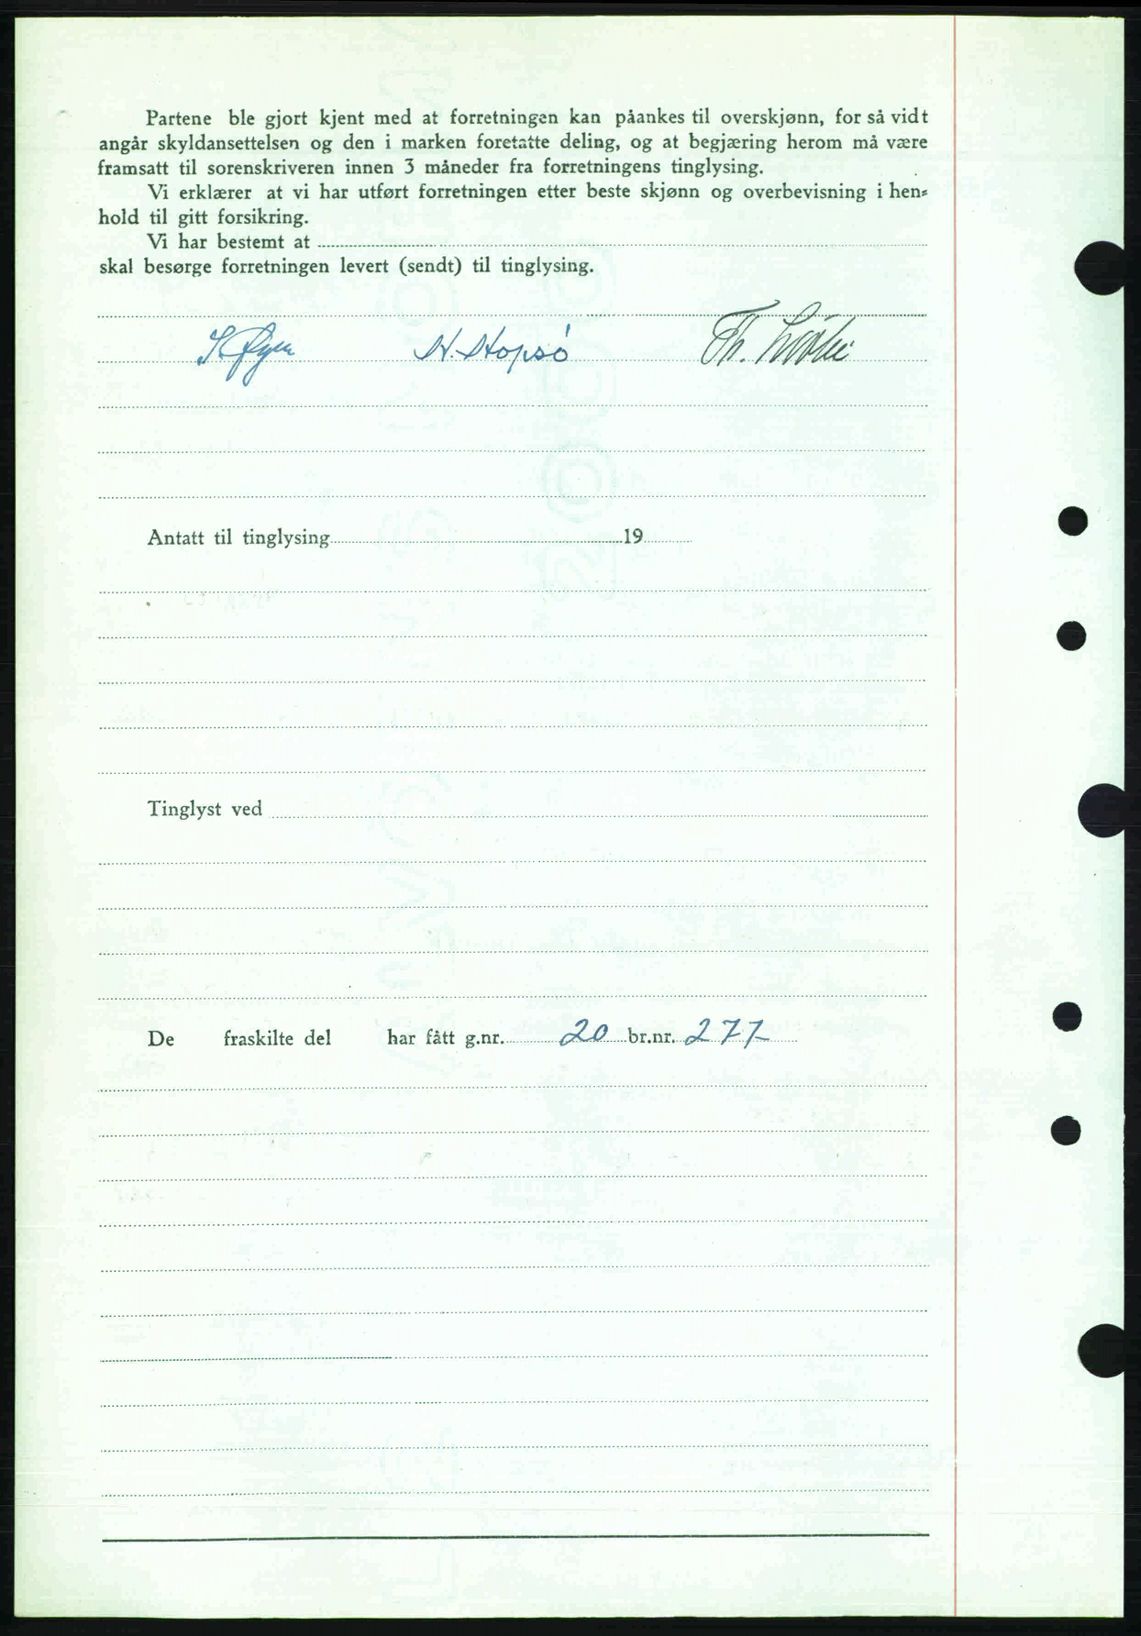 Partene ble gjort kjent med at forretningen kan påankes til overskjønn, for så vidt
angår skyldansettelsen og den i marken foretatte deling, og at begjæring herom må være
framsatt til sorenskriveren innen 3 måneder fra forretningens tinglysing.
Vi erklærer at vi har utført forretningen etter beste skjønn og overbevisning i hen-
hold til gitt forsikring.
Vi har bestemt at
skal besørge forretningen levert (sendt) til tinglysing.
Øyen N. Hopsö Th.
Antatt til tinglysing 19
Tinglyst ved
De fraskilte del har fått g.nr. 20 br.nr. 277